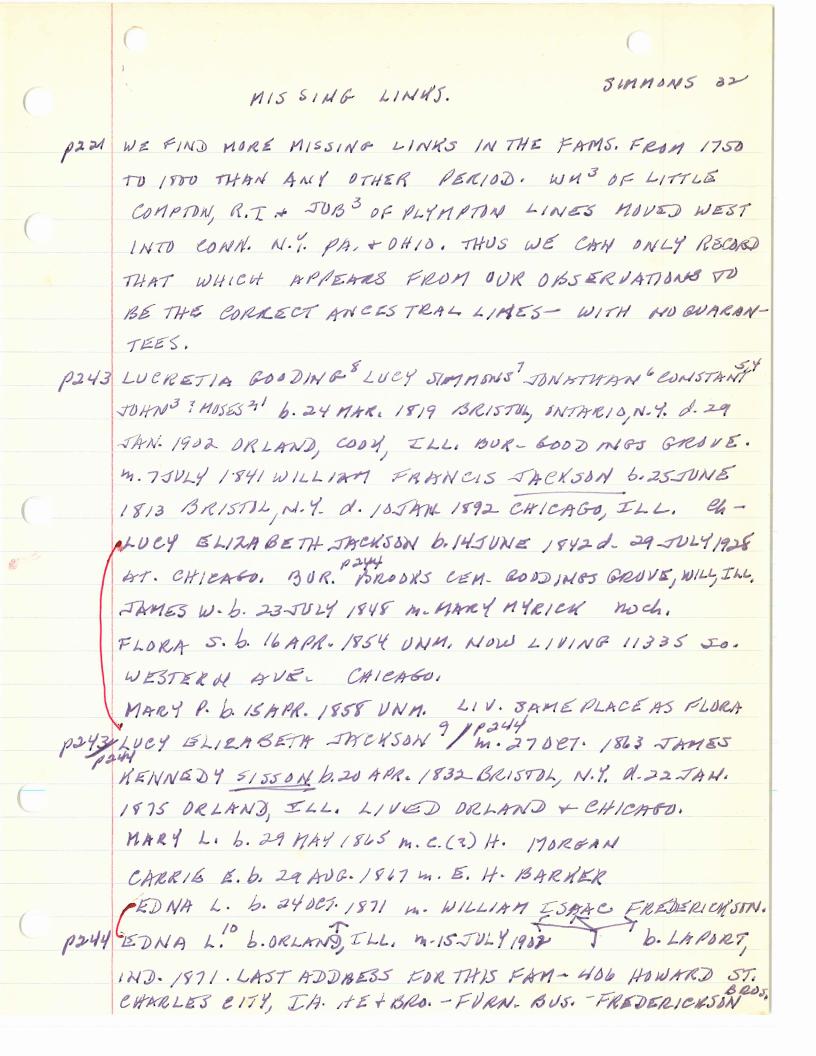 SIMMONS 32
MISSING LINKS.
p221 WE FIND MORE MISSING LINKS IN THE FAMS. FROM 1750
TO 1800 THAN ANY OTHER PERIOD. WM³ OF LITTLE
COMPTON, R.I & JOB³ OF PLYMPTON LINES MOVED WEST
INTO CONN. N.Y. PA. & OHIO. THUS WE CAN ONLY RECORD
THAT WHICH APPEARS FROM OUR OBSERVATIONS TO
BE THE CORRECT ANCESTRAL LINES- WITH NO GUARAN-
TEES.
p243 LUCRETIA GOODING⁸ LUCY SIMMONS⁷ JONATHAN⁶ CONSTANT⁵,⁴
JOHN³ ? MOSES²,¹ b. 24 MAR. 1819 BRISTOL, ONTARIO, N.Y. d. 29
JAN. 1902 ORLAND, COOK, ILL. BUR- GOODINGS GROVE.
m. 7 JULY 1841 WILLIAM FRANCIS JACKSON b. 25 JUNE
1813 BRISTOL, N.Y. d. 10 JAN 1892 CHICAGO, ILL. Ch-
LUCY ELIZABETH JACKSON b. 14 JUNE 1842 d. 29 JULY 1928
AT. CHICAGO. BUR. p244 BROOKS CEM- GOODINGS GROVE, WILL, ILL.
JAMES W. b. 23 JULY 1848 m. MARY MYRICK noch.
FLORA S. b. 16 APR. 1854 UNM. NOW LIVING 11335 So.
WESTERN AVE- CHICAGO.
MARY P. b. 15 APR. 1858 UNM. LIV. SAME PLACE AS FLORA
p243/p244 LUCY ELIZABETH JACKSON⁹ / p244 m. 27 OCT. 1863 JAMES
KENNEDY SISSON b. 20 APR. 1832 BRISTOL, N.Y. d. 22 JAN.
1875 ORLAND, ILL. LIVED ORLAND & CHICAGO.
MARY L. b. 29 MAY 1865 m. C. (?) H. MORGAN
CARRIE E. b. 29 AUG. 1867 m. E. H. BARKER
EDNA L. b. 24 OCT. 1871 m. WILLIAM ISAAC FREDERICKSON.
p244 EDNA L.¹⁰ b. ORLAND, ILL. m- 15 JULY 1902 b. LAPORT,
IND. 1871. LAST ADDRESS FOR THIS FAM- 406 HOWARD ST.
CHARLES CITY, IA. HE & BRO. - FURN. BUS. - FREDERICKSON BROS.